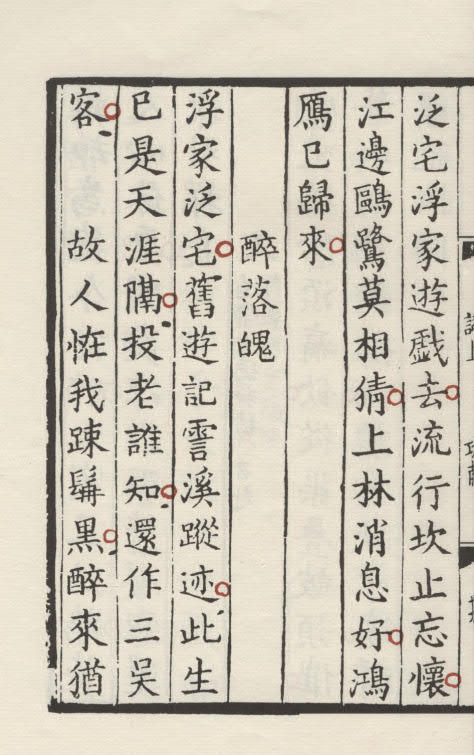 泛宅浮家遊戲去流行坎止忘懷
江邊鷗鷺莫相猜上林消息好鴻
鴈已歸來
醉落魄
浮家泛宅舊遊記霅溪蹤迹此生
已是天涯隔投老誰知還作三吳
客 故人恠我踈髯黑醉來猶